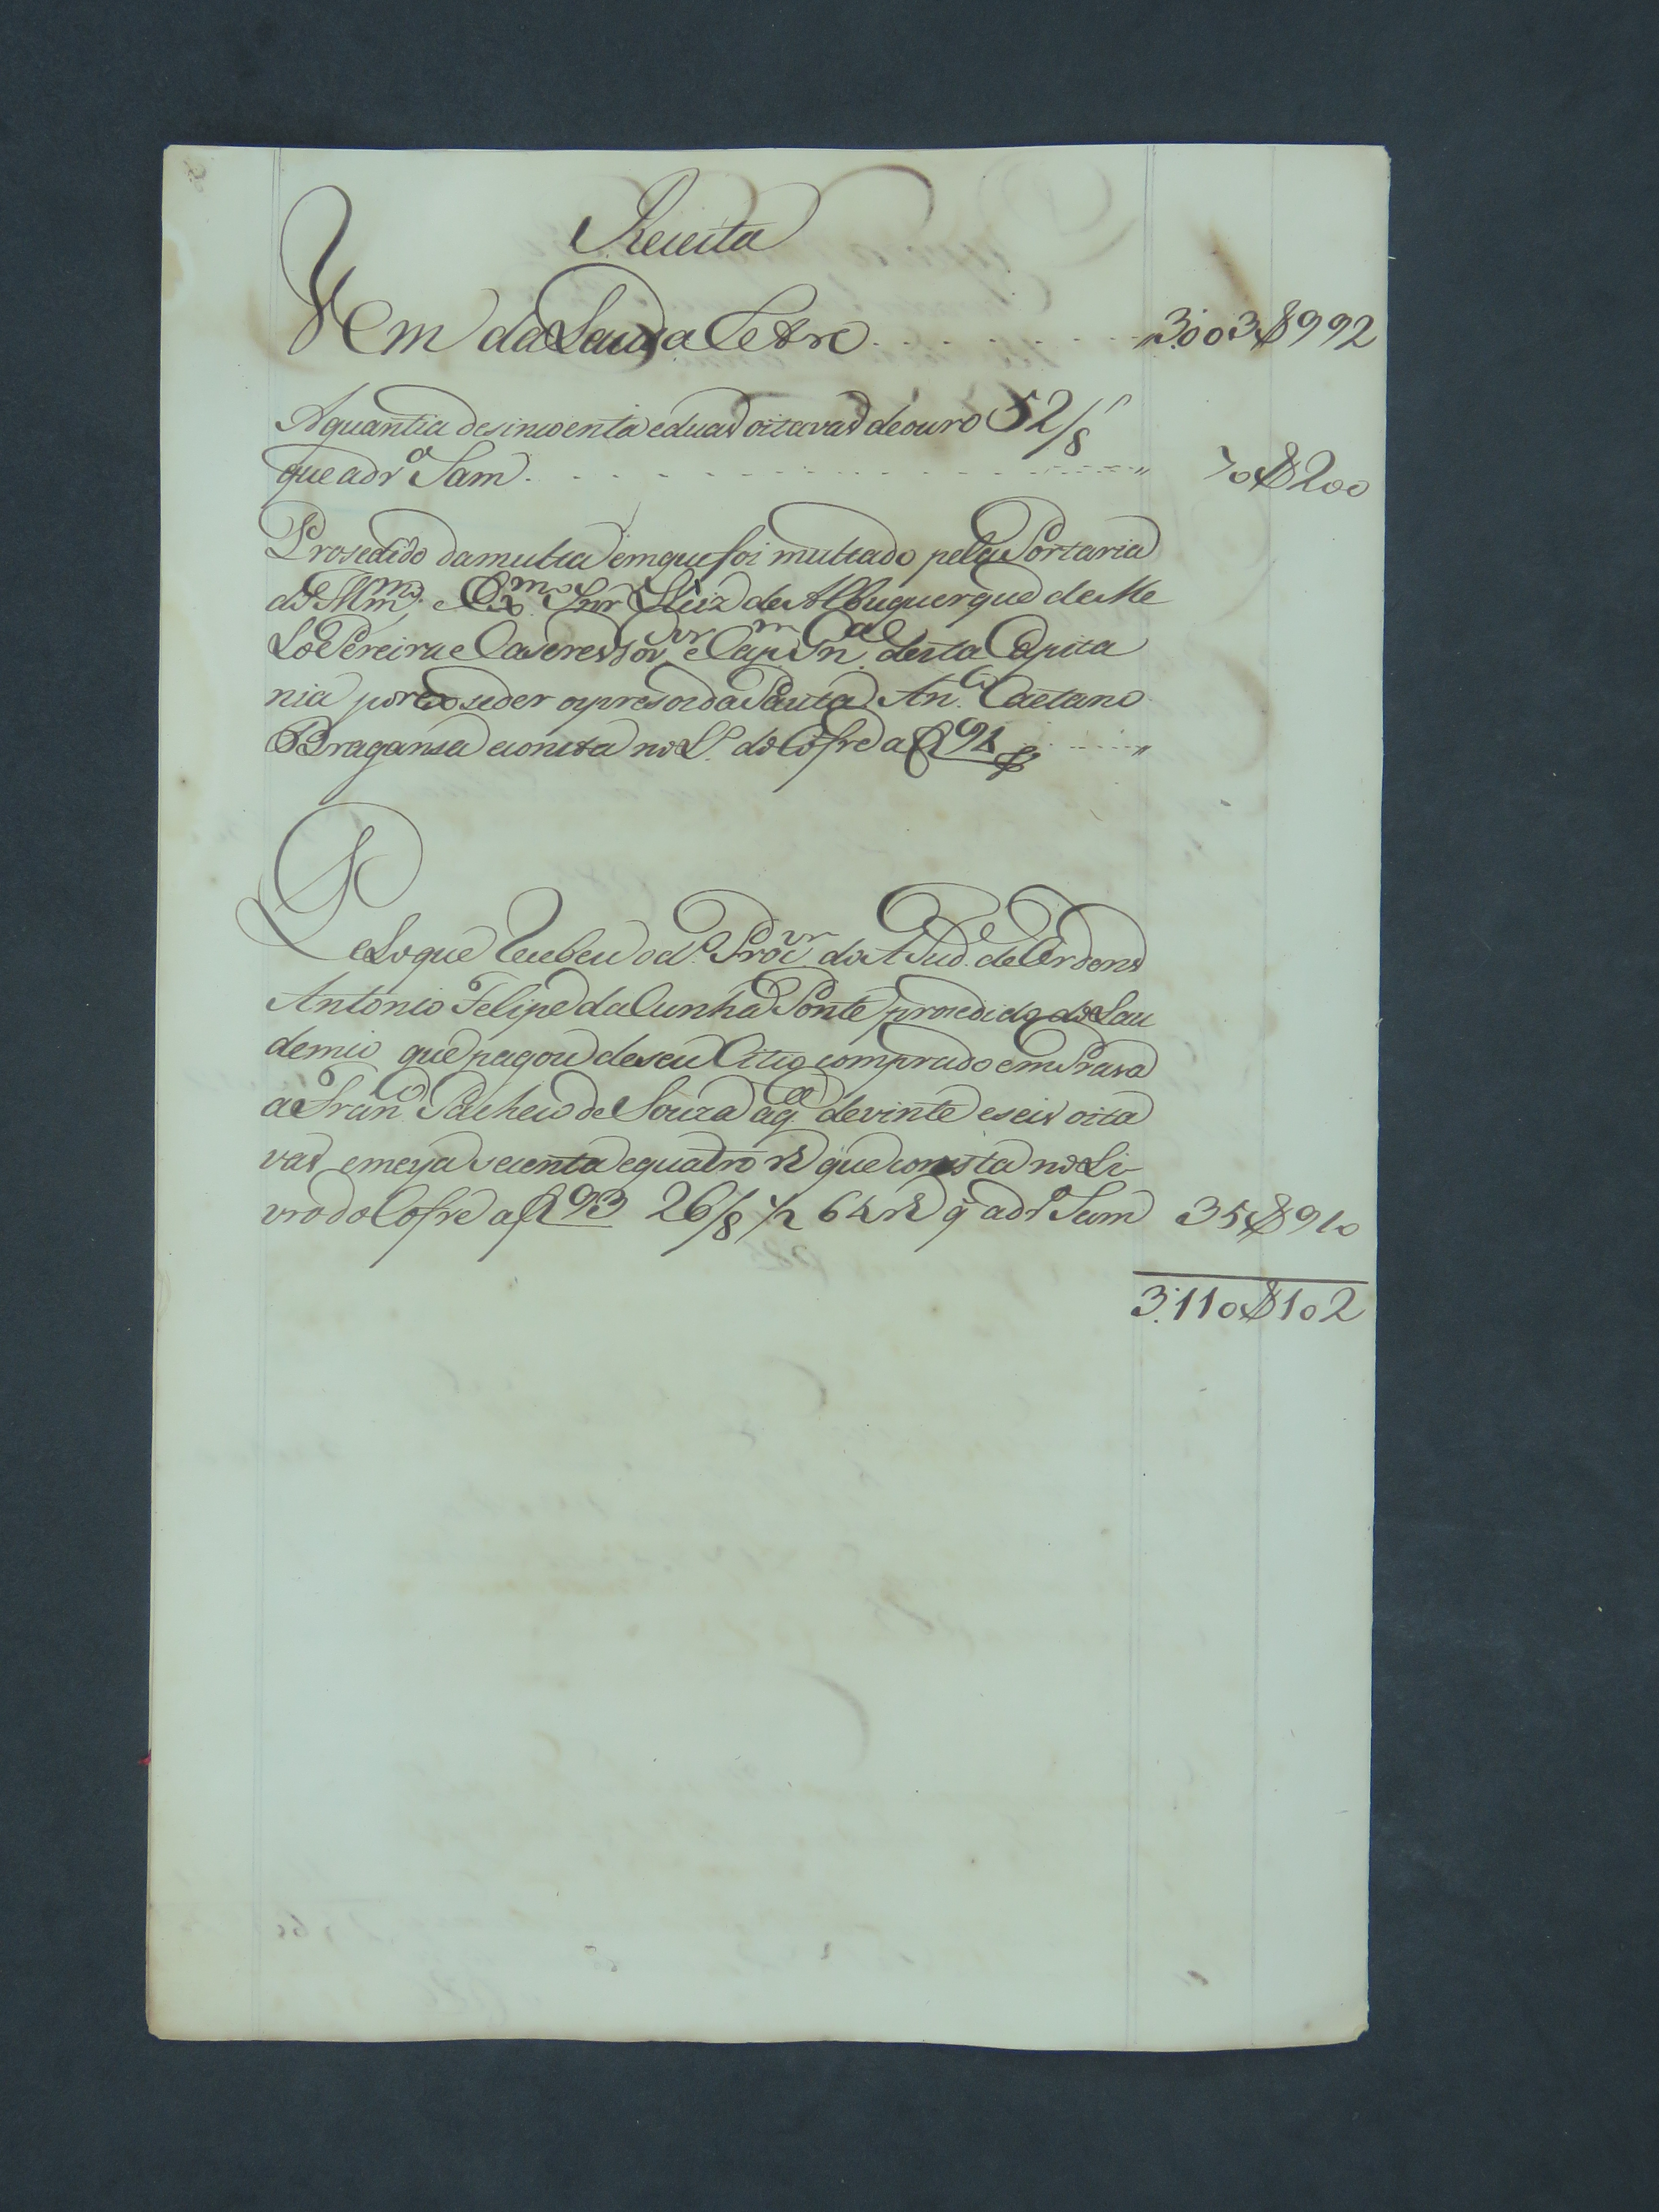 Receita
Vem da Lauda Retro . . . . . . . 3.003$992
A quantia de sincoenta e duas oitavas de ouro 52/8
que a dr.o Sam . . . . . . . . . . . . . . . " 70$200
Prosedido da multa em que foi multado pela Portaria
do Illm.o e Exm.o Snr Luiz de Albuquerque de Me
lo Pereira e Caseres Gov.or e Cap.m Gn.al desta Capita
nia por exseder os presos da Pauta An.to Caetano
Bragansa e consta no L.o do Cofre a f 92 . . . . "
Pelo que Recebeu o d.o Proc.or do Ajud.e de Ordens
Antonio Felipe da Cunha Ponte prosedido do Lau
demio que pagou de seu Citio comprado em Prasa
a Fran.co Pacheco de Souza a q.a de vinte e seis oita
vas e meya secenta e quatro rs que consta no Li-
vro do Cofre a f 93 26/8 1/2 64 rs q̃ a dr.o Sam 35$910
3.110$102